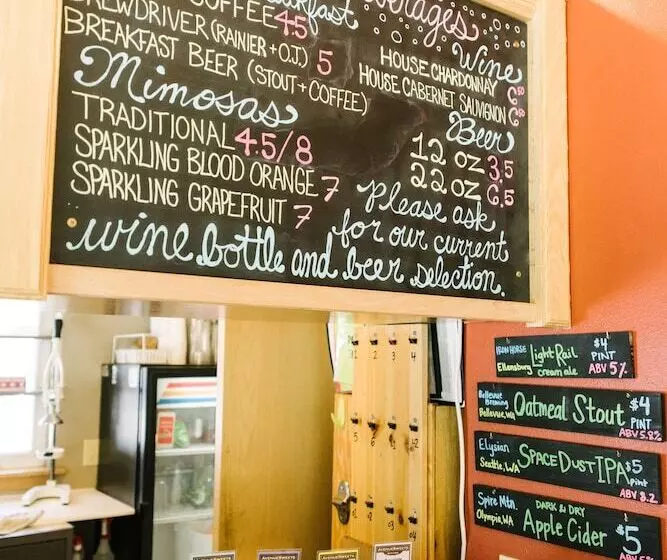 COFFEE 4.5
Breakfast
BREWDRIVER (RAINIER + O.J.) 5
BREAKFAST BEER (STOUT + COFFEE)
Mimosas
TRADITIONAL 4.5/8
SPARKLING BLOOD ORANGE 7
SPARKLING GRAPEFRUIT 7
Beverages
Wine
HOUSE CHARDONNAY 6.50
HOUSE CABERNET SAUVIGNON 6.50
Beer
12 OZ 3.5
22 OZ 6.5
Please ask
for our current
wine bottle and beer selection.
IRON HORSE
Ellensburg
Light Rail
cream ale
$4
PINT
ABV 5%
Bellevue
Brewing
Bellevue, WA
Oatmeal Stout
$4
PINT
ABV 5.8%
Elysian
Seattle, WA
SPACE DUST IPA
$5
pint
ABV 8.2
Spire Mtn.
Olympia, WA
DARK & DRY
Apple Cider
$5
1 2 3 4
AVENUE SWEETS
AVENUE SWEETS
AVENUE SWEETS
AVENUE SWEETS